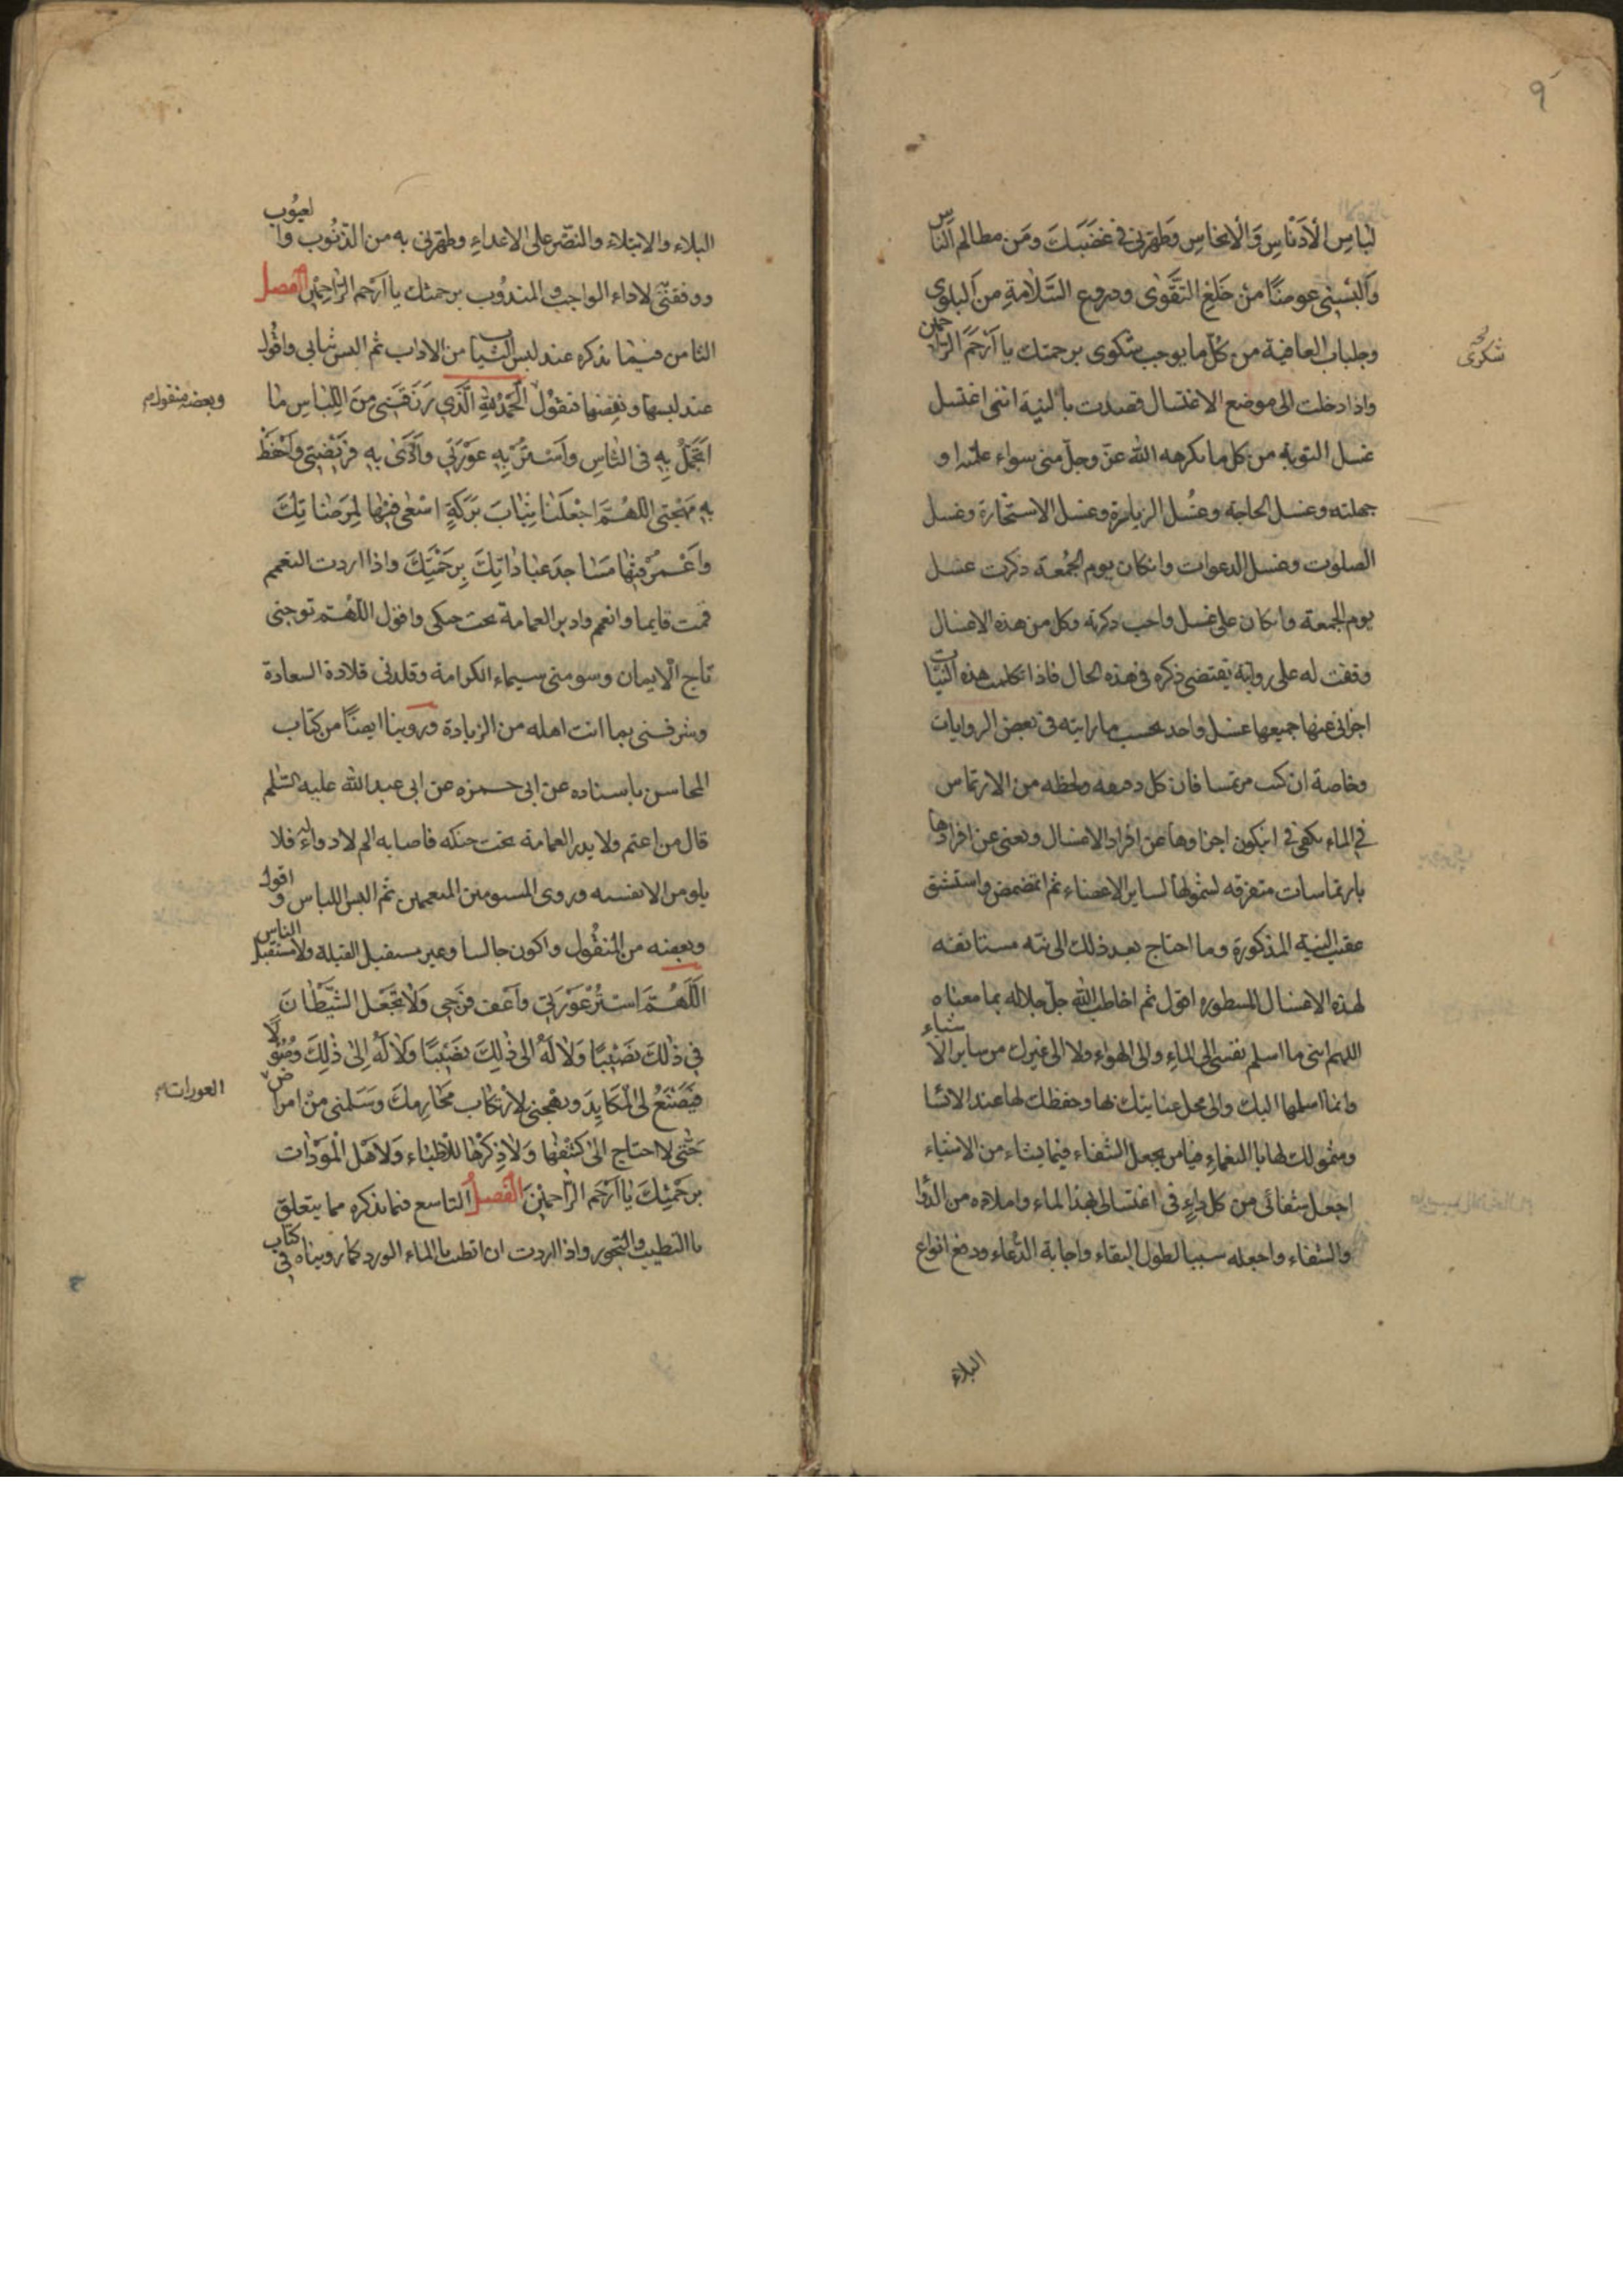 ٩
لباس الأدناس والأنجاس وطهرني في غضبك ومن مظالم الناس
وألبسني عوضًا من خلع التقوى ودروع السلامة من البلوى
وجلباب العافية من كل ما يوجب شكوى برحمتك يا أرحم الراحمين
شكرى
واذا دخلت الى موضع الاغتسال قصدت بالنية انني اغتسل
غسل التوبة من كل ما يكرهه الله عز وجل مني سواء علمته او
جهلته وغسل الحاجة وغسل الزيارة وغسل الاستخارة وغسل
الصلوت وغسل الدعوات وانكان يوم الجمعة ذكرت غسل
يوم الجمعة وانكان علي غسل واجب ذكرته وكل من هذه الاغسال
وقفت له على رواية تقتضي ذكره في هذه الحال فاذا تكلمت هذه النيات
اجزاني عنها جميعها غسل واحد بحسب ما رايته في بعض الروايات
وخاصة ان كنت مرتمسا فان كل دفعة ولحظه من الارتماس
في الماء يكفي في ان يكون اجزاوها عن افراد الاغسال ويغنى عن افرادها
بارتماسات متفرقه لشمولها لساير الاعضاء ثم اتمضمض واستنشق
عقيب النية المذكورة وما احتاج بعد ذلك الى نية مستانفة
لهذه الاغسال المسطوره اقول ثم اخاطب الله جل جلاله بما معناه
اللهم انني ما اسلم نفسي الى الماء ولا الى الهواء ولا الى غيرك من ساير الاشياء
وانما اسلمها اليك والى محل عنايتك بها وحفظك لها عند الانشا
وشمولك لها بالنعماء فيا من يجعل الشفاء فيما يشاء من الاشياء
اجعل شفائي من كل داء في اغتسالي بهذا الماء واملاه من الدوا
والشفاء واجعله سببا لطول البقاء واجابة الدعاء ودفع انواع
البلاء
البلاء والابتلاء والنصر على الاعداء وطهرني به من الذنوب والعيوب
ووفقني لاداء الواجب والمندوب برحمتك يا أرحم الراحمين الفصل
الثامن فيما نذكره عند لبس الثياب من الاداب ثم البس ثيابي واقول
عند لبسها وبعضها منقول الحمد لله الذي رزقني من اللباس ما
وبعضه منقول
أتجمل به في الناس وأستر به عورتي وأؤدي به فريضتي وأحفظ
به مهجتي اللهم اجعلنا ثياب بركة اسعى فيها لمرضاتك
وأعمر فيها مساجد عباداتك برحمتك واذا اردت التعمم
قمت قايما واتعمم وادير العمامة تحت حنكي واقول اللهم توجني
تاج الايمان وسومني سيماء الكرامة وقلدني قلادة السعادة
وشرفني بما انت اهله من الزيادة وروينا ايضًا من كتاب
المحاسن باسناده عن ابى حمزه عن ابى عبد الله عليه السلم
قال من اعتم ولا يدير العمامة تحت حنكه فاصابه الم لا دواء له فلا
يلومن الا نفسه وروى المسومين المتعممين ثم البس اللباس واقول
وبعضه من المنقول واكون جالسا وغير مستقبل القبلة ولا مستقبل الناس
اللهم استر عورتي وأعف فرجي ولا تجعل الشيطان
في ذلك نصيبًا ولا له الى ذلك نصيبًا ولا له إلى ذلك وصولًا
فيصنع لي المكايد ويهيجني لارتكاب محارمك وسلمني من امراض
العورات
حتى لا احتاج الى كشفها ولا ذكرها للأطباء ولا هل المودات
برحمتك يا أرحم الراحمين الفصل التاسع فيما نذكره مما يتعلق
بالتطييب والتبخور واذا اردت ان اتطيب بالماء الورد كما رويناه في كتاب